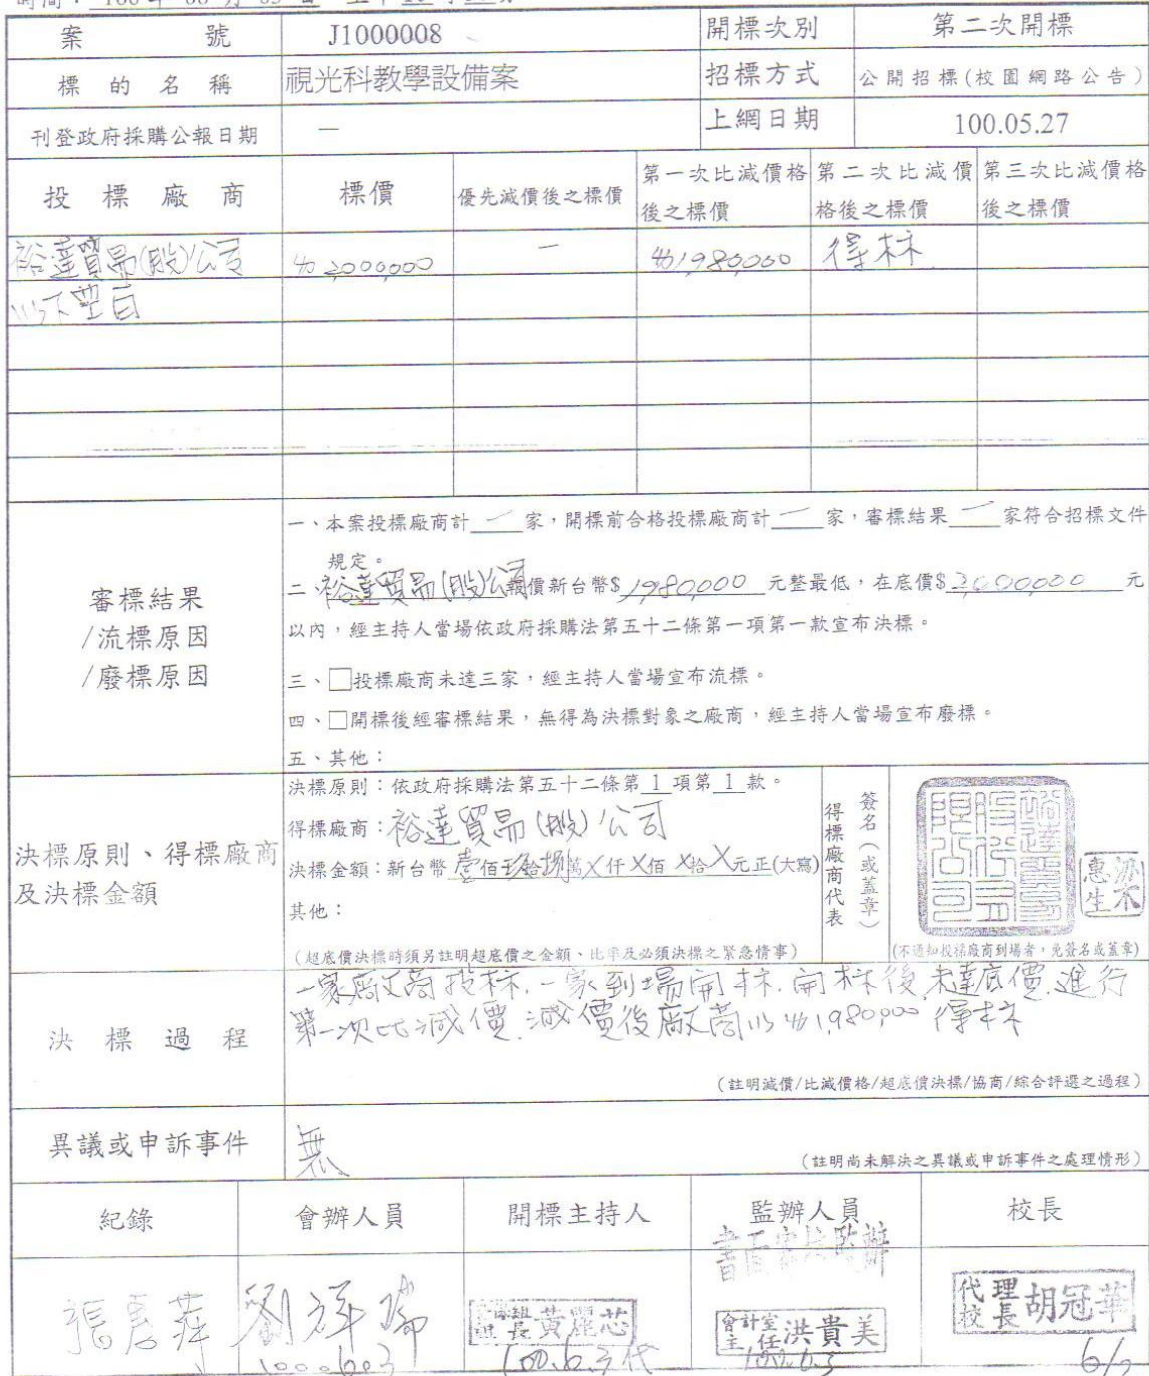 案號 J1000008 開標次別 第二次開標
標的名稱 視光科教學設備案 招標方式 公開招標(校園網路公告)
刊登政府採購公報日期 — 上網日期 100.05.27
投標廠商 標價 優先減價後之標價 第一次比減價格後之標價 第二次比減價格後之標價 第三次比減價格後之標價
裕達貿易(股)公司 2000,000 — 1,980,000 得标
以下空白
審標結果
/流標原因
/廢標原因
一、本案投標廠商計 一 家，開標前合格投標廠商計 一 家，審標結果 一 家符合招標文件
規定。
二、裕達貿易(股)公司報價新台幣$ 1,980,000 元整最低，在底價$ 2,000,000 元
以內，經主持人當場依政府採購法第五十二條第一項第一款宣布決標。
三、□投標廠商未達三家，經主持人當場宣布流標。
四、□開標後經審標結果，無得為決標對象之廠商，經主持人當場宣布廢標。
五、其他：
決標原則、得標廠商
及決標金額
決標原則：依政府採購法第五十二條第 1 項第 1 款。
得標廠商：裕達貿易(股)公司
決標金額：新台幣 壹佰玖拾捌萬X仟X佰X拾X元正(大寫)
其他：
(超底價決標時須另註明超底價之金額、比率及必須決標之緊急情事)
得標廠商代表
簽名(或蓋章)
裕達貿易股份有限公司
梁惠生
(不通知投標廠商到場者，免簽名或蓋章)
決標過程
一家廠商投标,一家到場開标.開标後,未達底價,進行
第一次比減價.減價後廠商以 1,980,000 得标
(註明減價/比減價格/超底價決標/協商/綜合評選之過程)
異議或申訴事件 無
(註明尚未解決之異議或申訴事件之處理情形)
紀錄 會辦人員 開標主持人 監辦人員 校長
書面審核監辦
劉祥瑞
黃麗芯
會計室主任 洪貴美
代理校長 胡冠華
100.6.3代
100.6.3